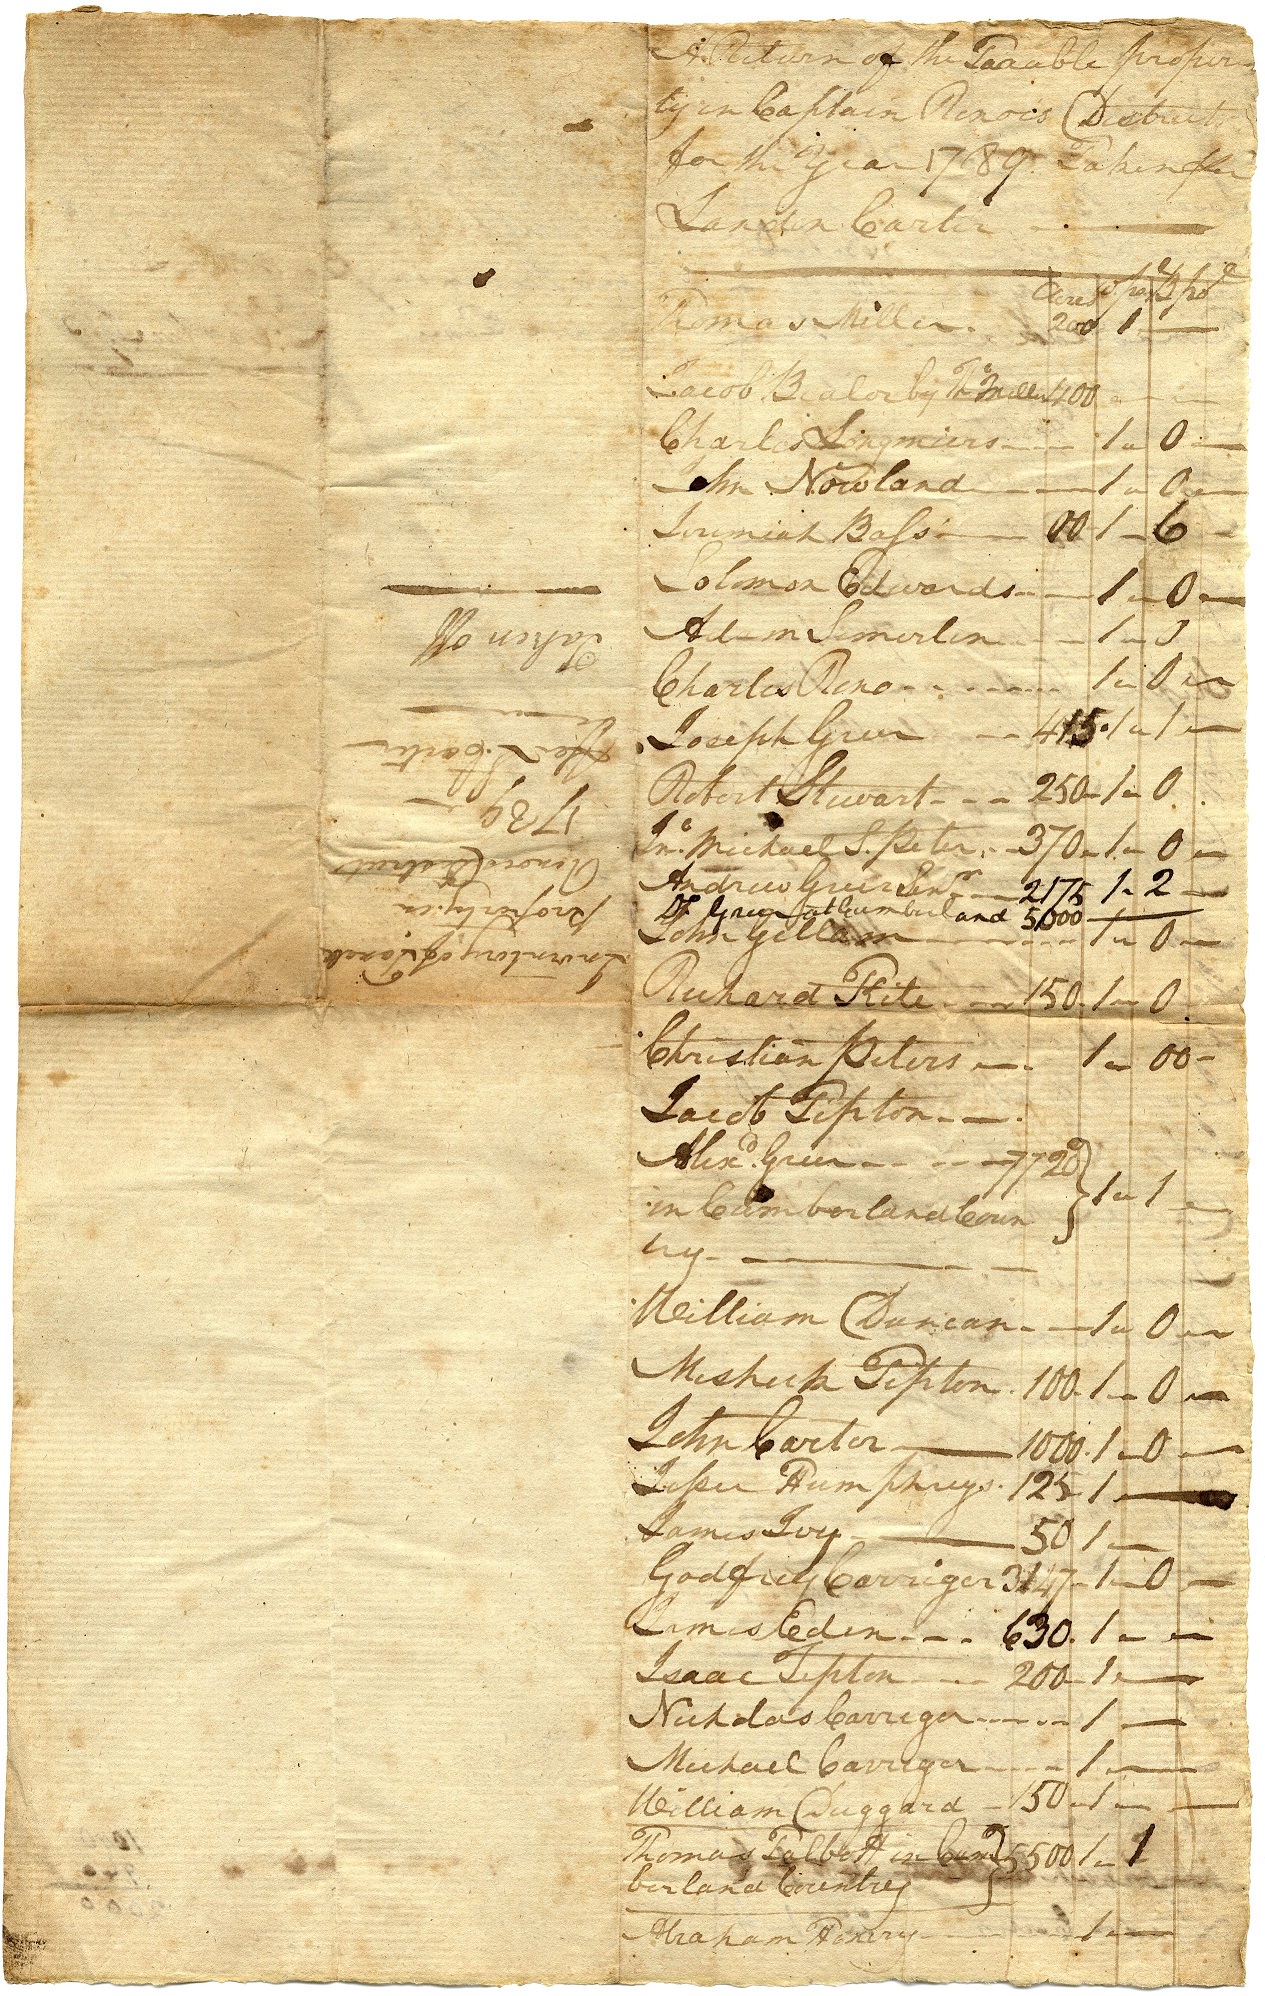 A Return of the Taxable proper-
ty in Captain Renois District
for the year 1789. Taken per
Landon Carter
Acres W. pole B pole
Thomas Miller. 200 1
Jacob Bealor by Ths Miller 400
Charles Longmiers 1 0
John Nowland 1 0
Jeremiah Bass 00 1 6
Solomon Edwards 1 0
Adam Simerlen 1
Charles Reno 1 0
Joseph Greer 415 1 1
Robert Stewart 250 1 0
Jno. Michael S. Peter 370 1 0
Andrew Greer Senr 2175 1 2
Do Greer at Cumberland 5000
John Gillam 1 0
Richard Kite 150 1 0
Christian Peters 1 00
Jacob Tipton
Alexd. Greer 7720 1 1
in Cumberland Coun
try
William Duncan 1 0
Mesheck Tipton 100 1 0
John Carter 1000 1 0
Jesse Humphreys 125 1
James Ivy 50 1
Godfrey Carriger 3147 1 0
James Eden 630 1
Isaac Tipton 200 1
Nicholas Carriger 1
Michael Carriger 1
William Duggard 150 1
Thomas Talbott in Cum 5500 1 1
berland Country
Abraham Henry 1
Inventory of Taxale
property in
Renoes District
1789
Per L. Carter
Taken off